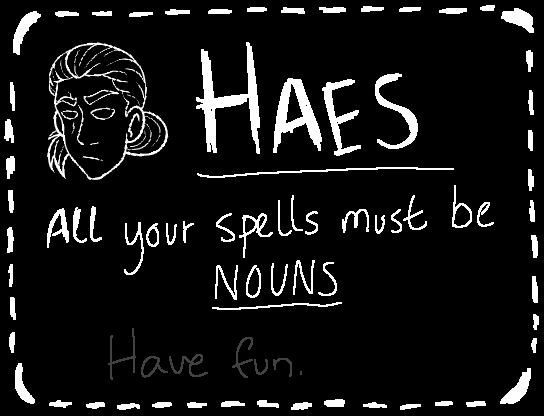 HAES
All your spells must be
NOUNS
Have fun.